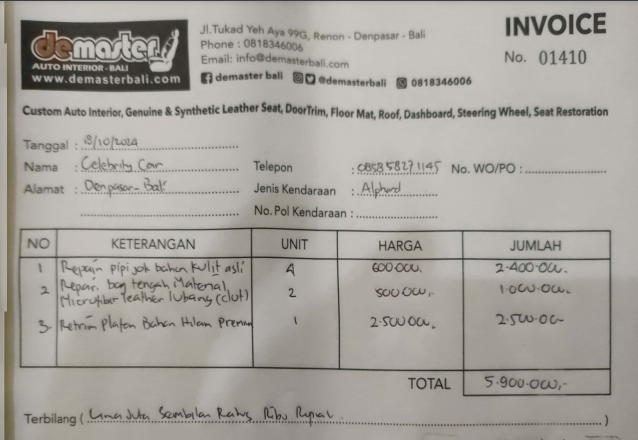 demaster
AUTO INTERIOR - BALI
www.demasterbali.com
Jl.Tukad Yeh Aya 99G, Renon - Denpasar - Bali
Phone : 0818346006
Email: info@demasterbali.com
demaster bali @demasterbali 0818346006
INVOICE
No. 01410
Custom Auto Interior, Genuine & Synthetic Leather Seat, DoorTrim, Floor Mat, Roof, Dashboard, Steering Wheel, Seat Restoration
Tanggal : /10/2024
Nama : Celebrity Car Telepon : 085858271145 No. WO/PO :
Alamat : Denpasar - Bali Jenis Kendaraan : Alphard
No.Pol Kendaraan :
NO KETERANGAN UNIT HARGA JUMLAH
1 Repair pipi jok bahan kulit asli 4 600.000. 2.400.000.
2 Repair bag tengah Material 2 500.000,- 1.000.000.
Microfiber leather lubang (clot)
3. Retrim Plafon Bahan Hitam Premium 1 2.500.000. 2.500.000
TOTAL 5.900.000,-
Terbilang ( Lima Juta Sembilan Ratus Ribu Rupiah. )